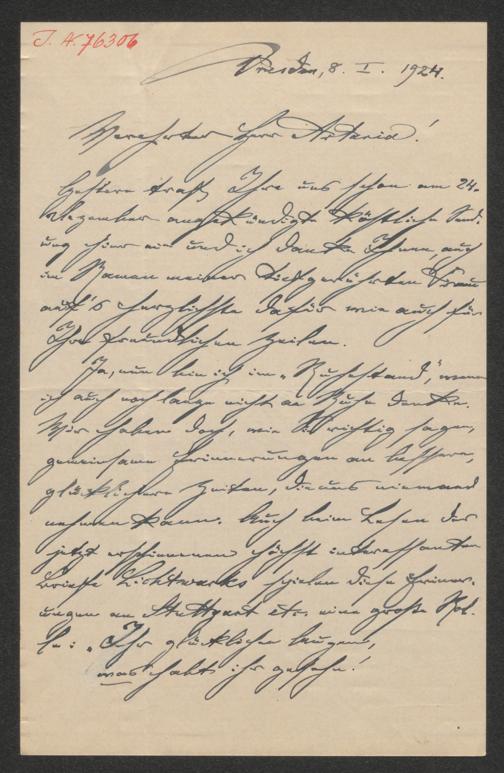 J. N. 76306
Dresden, 8. I. 1924.
Verehrter Herr Artaria!
Gestern traf Ihre uns schon am 24.
Dezember angekündigte köstliche Send-
ung hier ein und ich danke Ihnen, auch
im Namen meiner tiefgerührten Frau
auf's herzlichste dafür wie auch für
Ihre freundlichen Zeilen.
Ja, nun bin ich im „Ruhestand", wenn
ich auch noch lange nicht an Ruhe denke.
Wir haben doch, wie Sie richtig sagen,
gemeinsame Erinnerungen an bessere,
glücklichere Zeiten, die uns niemand
nehmen kann. Auch beim Lesen der
jetzt erschienenen höchst interessanten
Briefe Lichtwarks spielen diese Erinner-
ungen an Stuttgart etc. eine große Rol-
le: „Ihr glücklichen Augen,
was habt ihr gesehn!